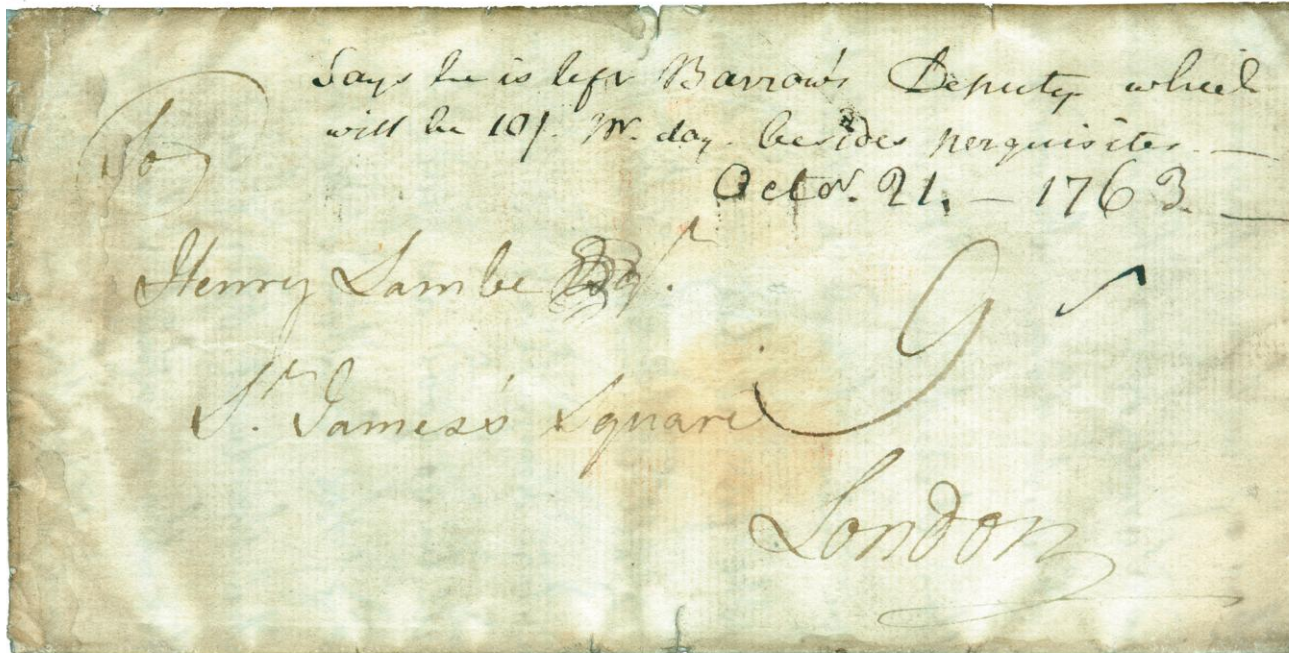 Says he is left Barrow's Deputy which
will be 10/. Pr. day. besides perquisites. —
Octor. 21. — 1763. —
To
Henry Lambe Esqr.
9
St. James's Square
London